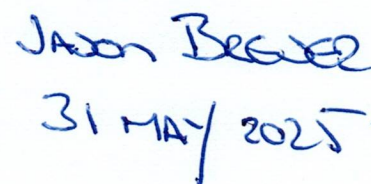 JASON BREWER
31 MAY 2025